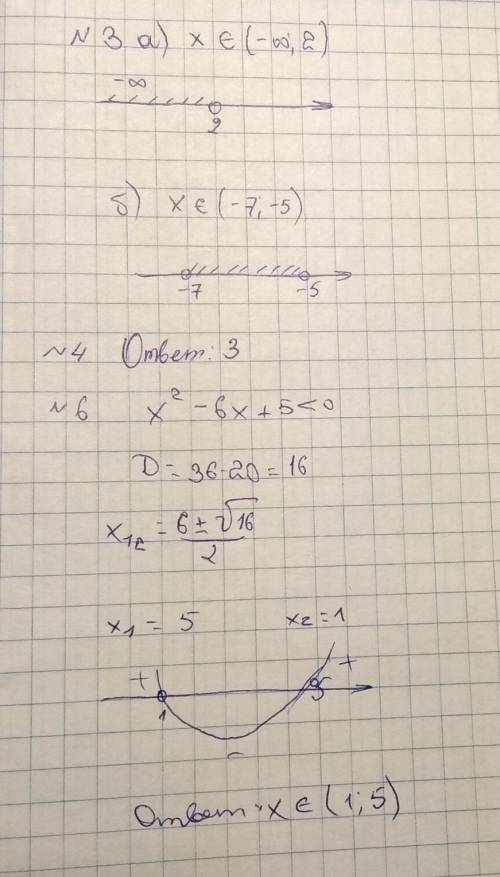 № 3 а) x ∈ (-∞; 2)
-∞
2
б) x ∈ (-7; -5)
-7 -5
№4 Ответ: 3
№6 x² - 6x + 5 < 0
D = 36-20 = 16
x₁₂ = (6 ± √16)/2
x₁ = 5 x₂ = 1
+ +
1 5
-
Ответ: x ∈ (1; 5)